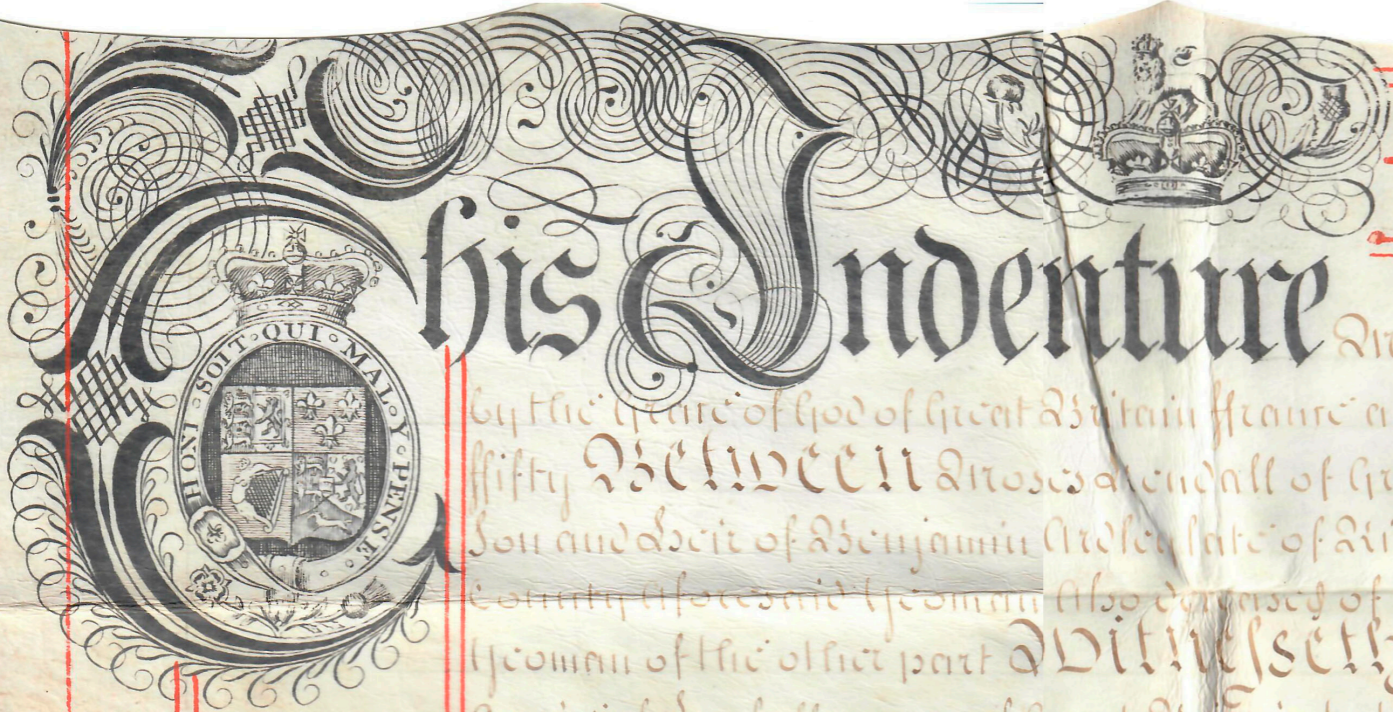 This Indenture
HONI·SOIT·QUI·MAL·Y·PENSE
by the Grace of God of Great Britain ffrance a
ffifty Between Moses of
Son and Heir of Benjamin late of
County aforesaid Yeoman also deceased of
Yeoman of the other part Witnesseth